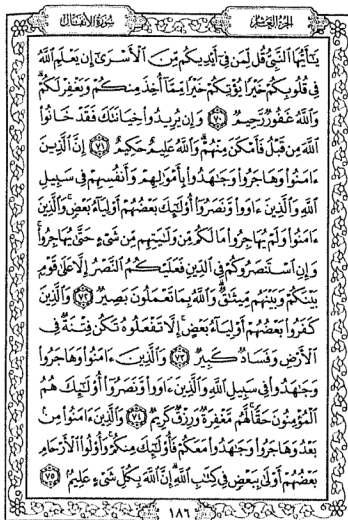 سورة الأنفال
الجزء العاشر
يَـٰٓأَيُّهَا ٱلنَّبِىُّ قُل لِّمَن فِىٓ أَيْدِيكُم مِّنَ ٱلْأَسْرَىٰٓ إِن يَعْلَمِ ٱللَّهُ
فِى قُلُوبِكُمْ خَيْرًا يُؤْتِكُمْ خَيْرًا مِّمَّآ أُخِذَ مِنكُمْ وَيَغْفِرْ لَكُمْ ۗ
وَٱللَّهُ غَفُورٌ رَّحِيمٌ ٧٠ وَإِن يُرِيدُوا۟ خِيَانَتَكَ فَقَدْ خَانُوا۟
ٱللَّهَ مِن قَبْلُ فَأَمْكَنَ مِنْهُمْ ۗ وَٱللَّهُ عَلِيمٌ حَكِيمٌ ٧١ إِنَّ ٱلَّذِينَ
ءَامَنُوا۟ وَهَاجَرُوا۟ وَجَـٰهَدُوا۟ بِأَمْوَٰلِهِمْ وَأَنفُسِهِمْ فِى سَبِيلِ
ٱللَّهِ وَٱلَّذِينَ ءَاوَوا۟ وَّنَصَرُوٓا۟ أُو۟لَـٰٓئِكَ بَعْضُهُمْ أَوْلِيَآءُ بَعْضٍ ۚ وَٱلَّذِينَ
ءَامَنُوا۟ وَلَمْ يُهَاجِرُوا۟ مَا لَكُم مِّن وَلَـٰيَتِهِم مِّن شَىْءٍ حَتَّىٰ يُهَاجِرُوا۟ ۚ
وَإِنِ ٱسْتَنصَرُوكُمْ فِى ٱلدِّينِ فَعَلَيْكُمُ ٱلنَّصْرُ إِلَّا عَلَىٰ قَوْمٍۭ
بَيْنَكُمْ وَبَيْنَهُم مِّيثَـٰقٌ ۗ وَٱللَّهُ بِمَا تَعْمَلُونَ بَصِيرٌ ٧٢ وَٱلَّذِينَ
كَفَرُوا۟ بَعْضُهُمْ أَوْلِيَآءُ بَعْضٍ ۚ إِلَّا تَفْعَلُوهُ تَكُن فِتْنَةٌ فِى
ٱلْأَرْضِ وَفَسَادٌ كَبِيرٌ ٧٣ وَٱلَّذِينَ ءَامَنُوا۟ وَهَاجَرُوا۟
وَجَـٰهَدُوا۟ فِى سَبِيلِ ٱللَّهِ وَٱلَّذِينَ ءَاوَوا۟ وَّنَصَرُوٓا۟ أُو۟لَـٰٓئِكَ هُمُ
ٱلْمُؤْمِنُونَ حَقًّا ۚ لَّهُم مَّغْفِرَةٌ وَرِزْقٌ كَرِيمٌ ٧٤ وَٱلَّذِينَ ءَامَنُوا۟ مِنۢ
بَعْدُ وَهَاجَرُوا۟ وَجَـٰهَدُوا۟ مَعَكُمْ فَأُو۟لَـٰٓئِكَ مِنكُمْ ۚ وَأُو۟لُوا۟ ٱلْأَرْحَامِ
بَعْضُهُمْ أَوْلَىٰ بِبَعْضٍ فِى كِتَـٰبِ ٱللَّهِ ۗ إِنَّ ٱللَّهَ بِكُلِّ شَىْءٍ عَلِيمٌۢ ٧٥
١٨٦